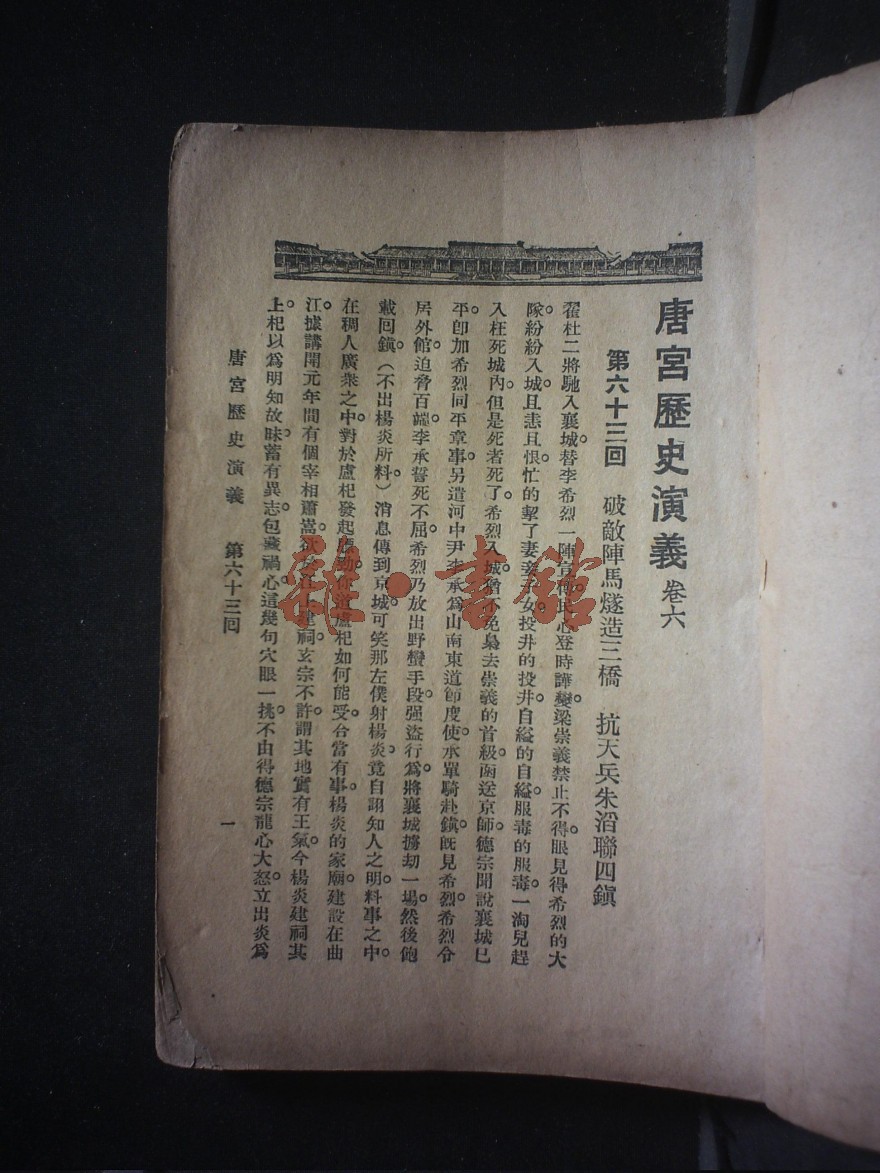 唐宮歷史演義 卷六
第六十三回 破敵陣馬燧造三橋 抗天兵朱滔聯四鎭
翟杜二將馳入襄城。替李希烈一陣宣傳。民心登時譁變。梁崇義禁止不得。眼見得希烈的大
隊紛紛入城。且恚且恨。忙的挈了妻妾子女。投井的投井。自縊的自縊。服毒的服毒。一淘兒趕
入枉死城內。但是死者死了。希烈入城。猶不免梟去崇義的首級。函送京師。德宗聞說襄城已
平。卽加希烈同平章事。另遣河中尹李承爲山南東道節度使。承單騎赴鎭。旣見希烈。希烈令
居外館。迫脅百端。李承誓死不屈。希烈乃放出野蠻手段。强盜行爲。將襄城擄劫一場。然後飽
載回鎭。（不出楊炎所料）消息傳到京城。可笑那左僕射楊炎。竟自詡知人之明。料事之中。
在稠人廣衆之中。對於盧杞發起 你道盧杞如何能受。台當有事。楊炎的家廟。建設在曲
江。據講開元年間。有個宰相蕭嵩。欲於江上建祠。玄宗不許。謂其地實有王氣。今楊炎建祠其
上。杞以爲明知故昧。蓄有異志。包藏禍心。這幾句穴眼一挑。不由得德宗龍心大怒。立出炎爲
唐宮歷史演義 第六十三回 一
雜·書館